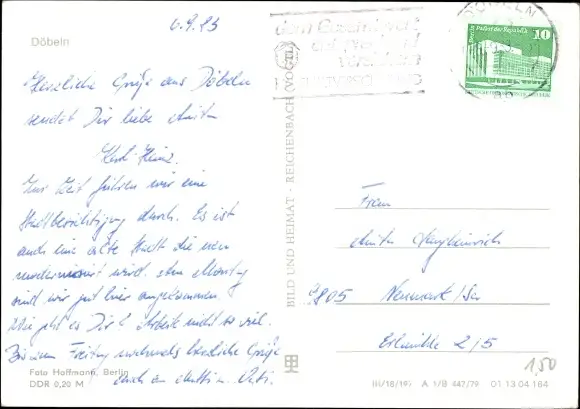 6.9.83
Döbeln
Herzliche Grüße aus Döbeln
sendet Dir liebe Anita
Karl-Heinz.
Zur Zeit führen wir eine
Stadtbesichtigung durch. Es ist
auch eine alte Stadt die nun
modernisiert wird. Am Montag
sind wir gut hier angekommen.
Wie geht es Dir? Arbeite nicht so viel.
Bis zum Freitag nochmals herzliche Grüße
auch an
Foto Hoffmann, Berlin
DDR 0,20 M
BILD UND HEIMAT · REICHENBACH (VOGTL)
DÖBELN
Berlin Palast der Republik
10
Frau
Anita
9805 Neumark/Sa
2/5
III/18/197 A 1/B 447/79 01 13 04 164
1,50